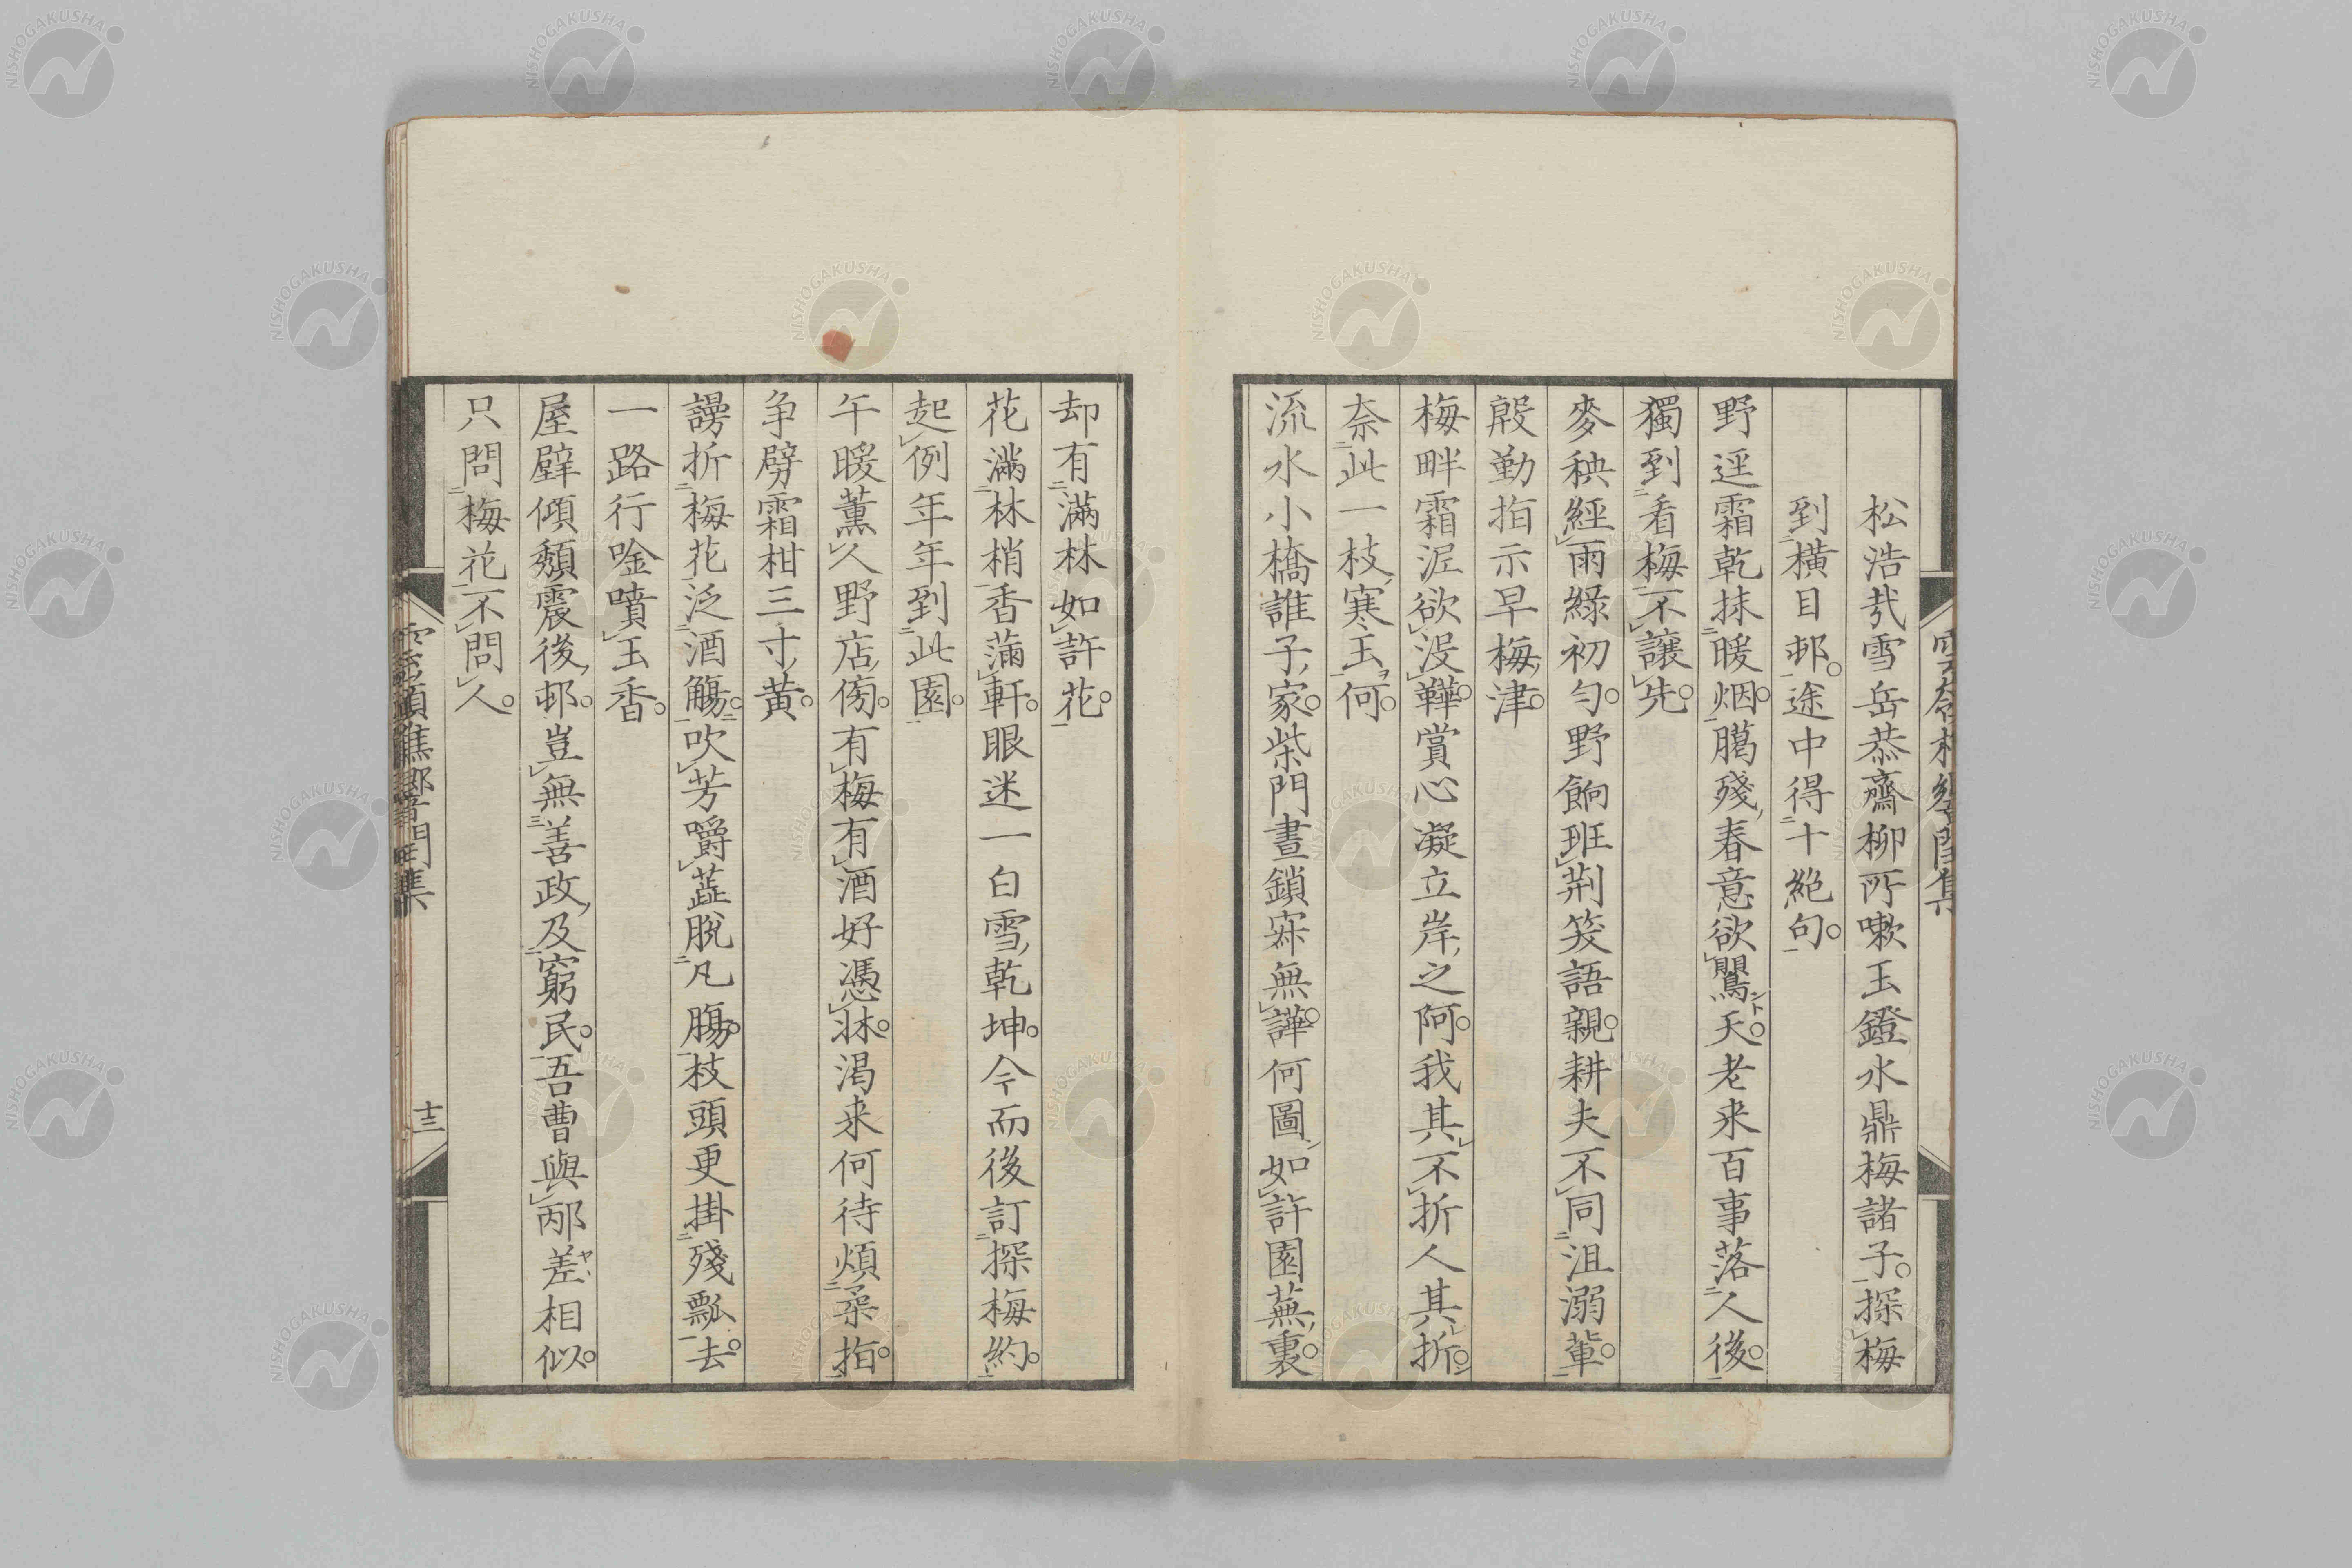 松浩哉雪岳恭齋柳所嗽玉鐙水鼎梅諸子。探梅
到橫目邨。途中得十絶句。
野逕霜乾抹暖烟。臈殘春意欲鸎天。老来百事落人後。
獨到看梅不讓先。
麥秧經雨綠初勻。野餉班荆笑語親。耕夫不同沮溺輩。
殷勤指示早梅津。
梅畔霜泥欲沒鞾。賞心凝立岸之阿。我其不折人其折。
奈此一枝寒玉何。
流水小橋誰子家。柴門晝鎖寂無譁。何圖如許園蕪裏。
却有滿林如許花。
花滿林梢香滿軒。眼迷一白雪乾坤。今而後訂探梅約。
起例年年到此園。
午暖薰人野店傍。有梅有酒好憑牀。渇来何待煩柔指。
争劈霜柑三寸黄。
謾折梅花泛酒觴。吹芳嚼蕋脫凡腸。枝頭更掛殘瓢去。
一路行唫噴玉香。
屋壁傾頽震後邨。豈無善政及窮民。吾曹與邴差相似。
只問梅花不問人。
十三